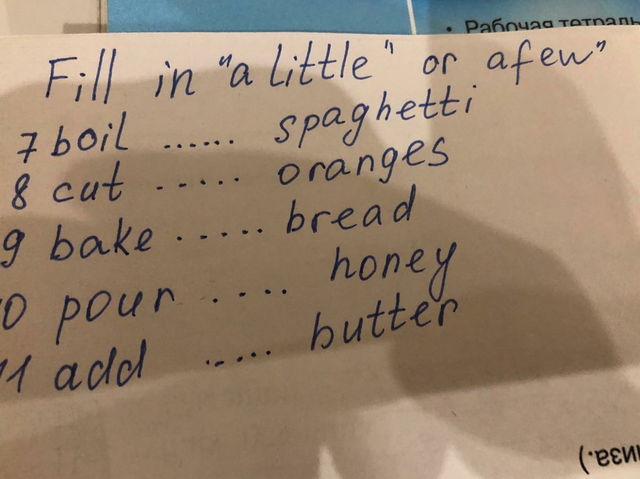 • Рабочая тетрадь
Fill in "a little" or a few"
7 boil ...... spaghetti
8 cut ..... oranges
9 bake ..... bread
0 pour .... honey
11 add ..... butter
.)